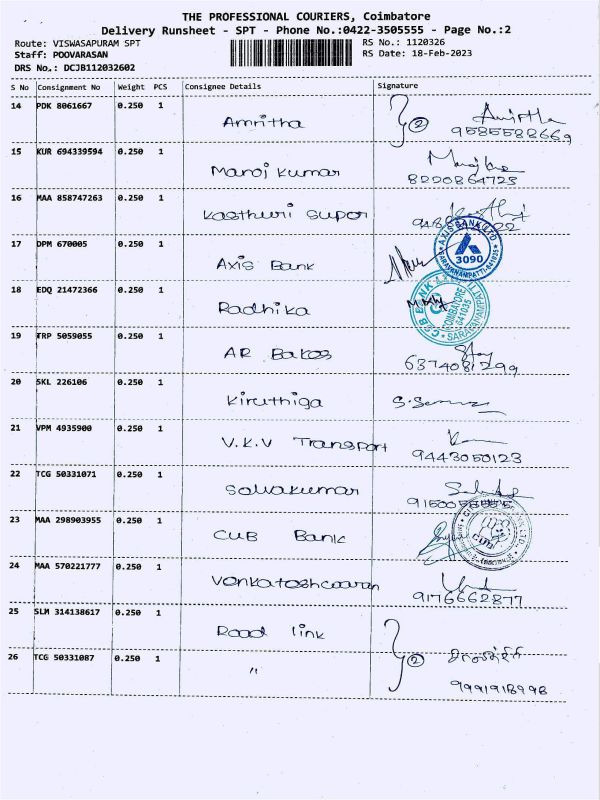 THE PROFESSIONAL COURIERS, Coimbatore
Delivery Runsheet - SPT - Phone No.:0422-3505555 - Page No.:2
Route: VISWASAPURAM SPT RS No.: 1120326
Staff: POOVARASAN RS Date: 18-Feb-2023
DRS No.: DCJB112032602
S No Consignment No Weight PCS Consignee Details Signature
14 PDK 8061667 0.250 1 Amritha 2
9585588669
15 KUR 694339594 0.250 1 Manoj Kumar
8220864723
16 MAA 858747263 0.250 1 Kasthuri Super
17 DPM 670005 0.250 1 Axis Bank
AXIS BANK LTD
3090
SARAVANAMPATTI-641035
18 EDQ 21472366 0.250 1 Radhika
COIMBATORE
641035
SARAVANAMPATTI
19 TRP 5059055 0.250 1 AR Bakes
6374081299
20 SKL 226106 0.250 1 Kiruthiga
21 VPM 4935900 0.250 1 V.K.V Transport
9443050123
22 TCG 50331071 0.250 1 Selvakumar
23 MAA 298903955 0.250 1 CUB Bank
24 MAA 570221777 0.250 1 Venkateshwaran
9176662877
25 SLM 314138617 0.250 1 Road link
26 TCG 50331087 0.250 1 〃 2
9991918998